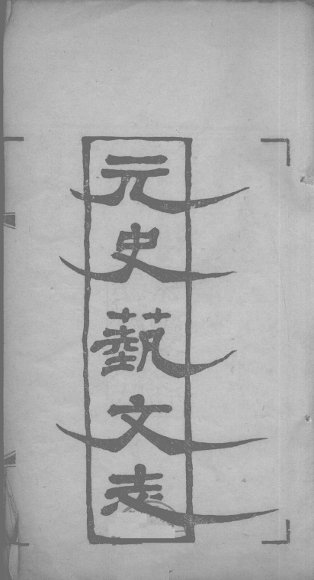 元史藝文志